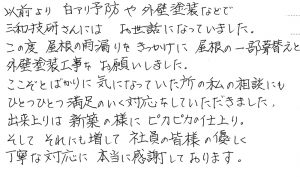 以前より 白アリ予防や外壁塗装などで
三和技研さんには お世話になっていました。
この度 屋根の雨漏りをきっかけに 屋根の一部葺替えと
外壁塗装工事を お願いしました。
ここぞとばかりに 気になっていた所の私の相談にも
ひとつひとつ満足のいく対応をしていただきました。
出来上りは 新築の様に ピカピカの仕上り。
そして それにも増して 社員の皆様の優しく
丁寧な対応に 本当に感謝しております。